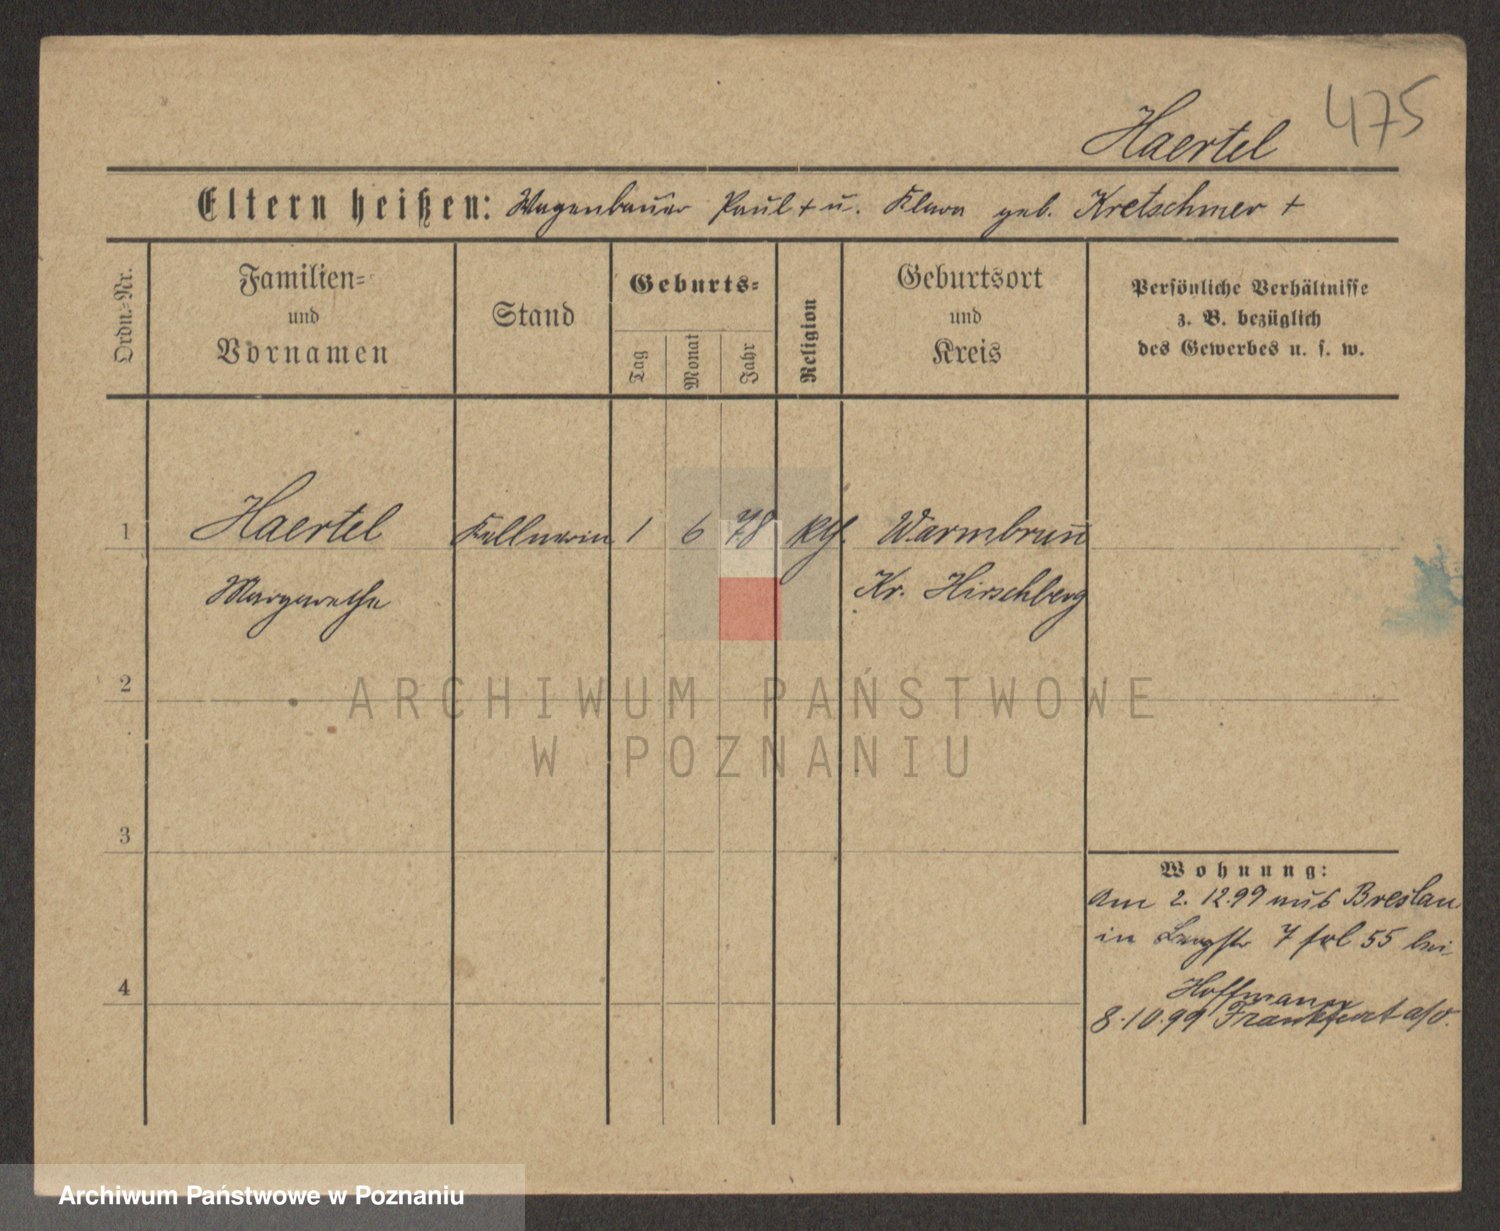 475
Haertel
Eltern heißen: Wagenbauer Paul + u. Klara geb. Kretschmer +
Ordn.-Nr.
Familien-
und
Vornamen
Stand
Geburts-
Tag
Monat
Jahr
Religion
Geburtsort
und
Kreis
Persönliche Verhältnisse
z. B. bezüglich
des Gewerbes u. s. w.
1 Haertel Kellnerin 1 6 78 kth. Warmbrunn
Margarethe Kr. Hirschberg
2
ARCHIWUM PAŃSTWOWE
W POZNANIU
3
Wohnung:
Am 2. 12.99 aus Breslau
in 7 55 bei
Hoffmann
4
8.10.99 Frankfurt a/O.
Archiwum Państwowe w Poznaniu